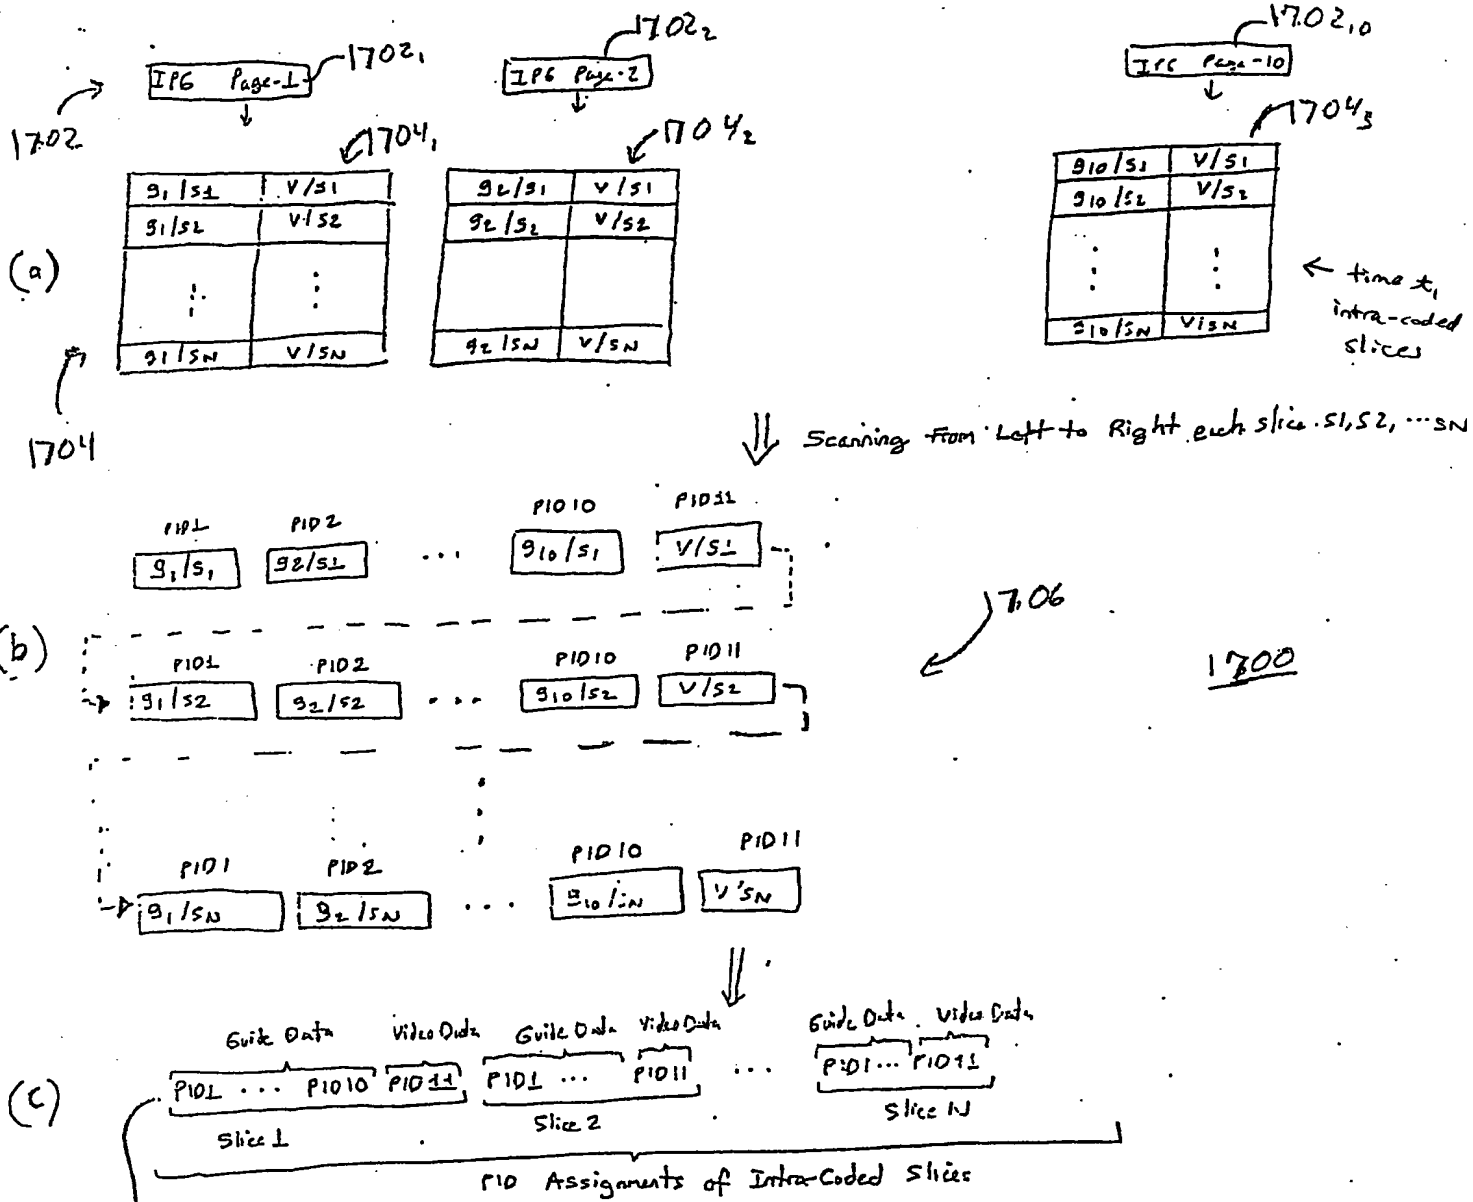 1702₁ 1702₂ 1702₁₀
IPG Page-1 IPG Page-2 IPG Page-10
1702
1704₁ 1704₂ 1704₃
g₁/s1 V/s1 g2/s1 V/s1 g10/s1 V/s1
g1/s2 V/s2 g2/s2 V/s2 g10/s2 V/s2
(a)
← time t₁
intra-coded
slices
g1/sN V/sN g2/sN V/sN g10/sN V/sN
1704
Scanning from Left to Right each slice s1, s2, ... sN
PID1 PID2 PID10 PID11
g₁/s₁ g2/s1 ... g10/s1 V/s1
1706
(b)
1700
PID1 PID2 PID10 PID11
g1/s2 g2/s2 ... g10/s2 V/s2
PID1 PID2 PID10 PID11
g1/sN g2/sN ... g10/sN V/sN
Guide Data Video Data Guide Data Video Data Guide Data Video Data
(c)
PID1 ... PID10 PID11 PID1 ... PID11 ... PID1 ... PID11
Slice 1 Slice 2 Slice N
PID Assignments of Intra-Coded Slices